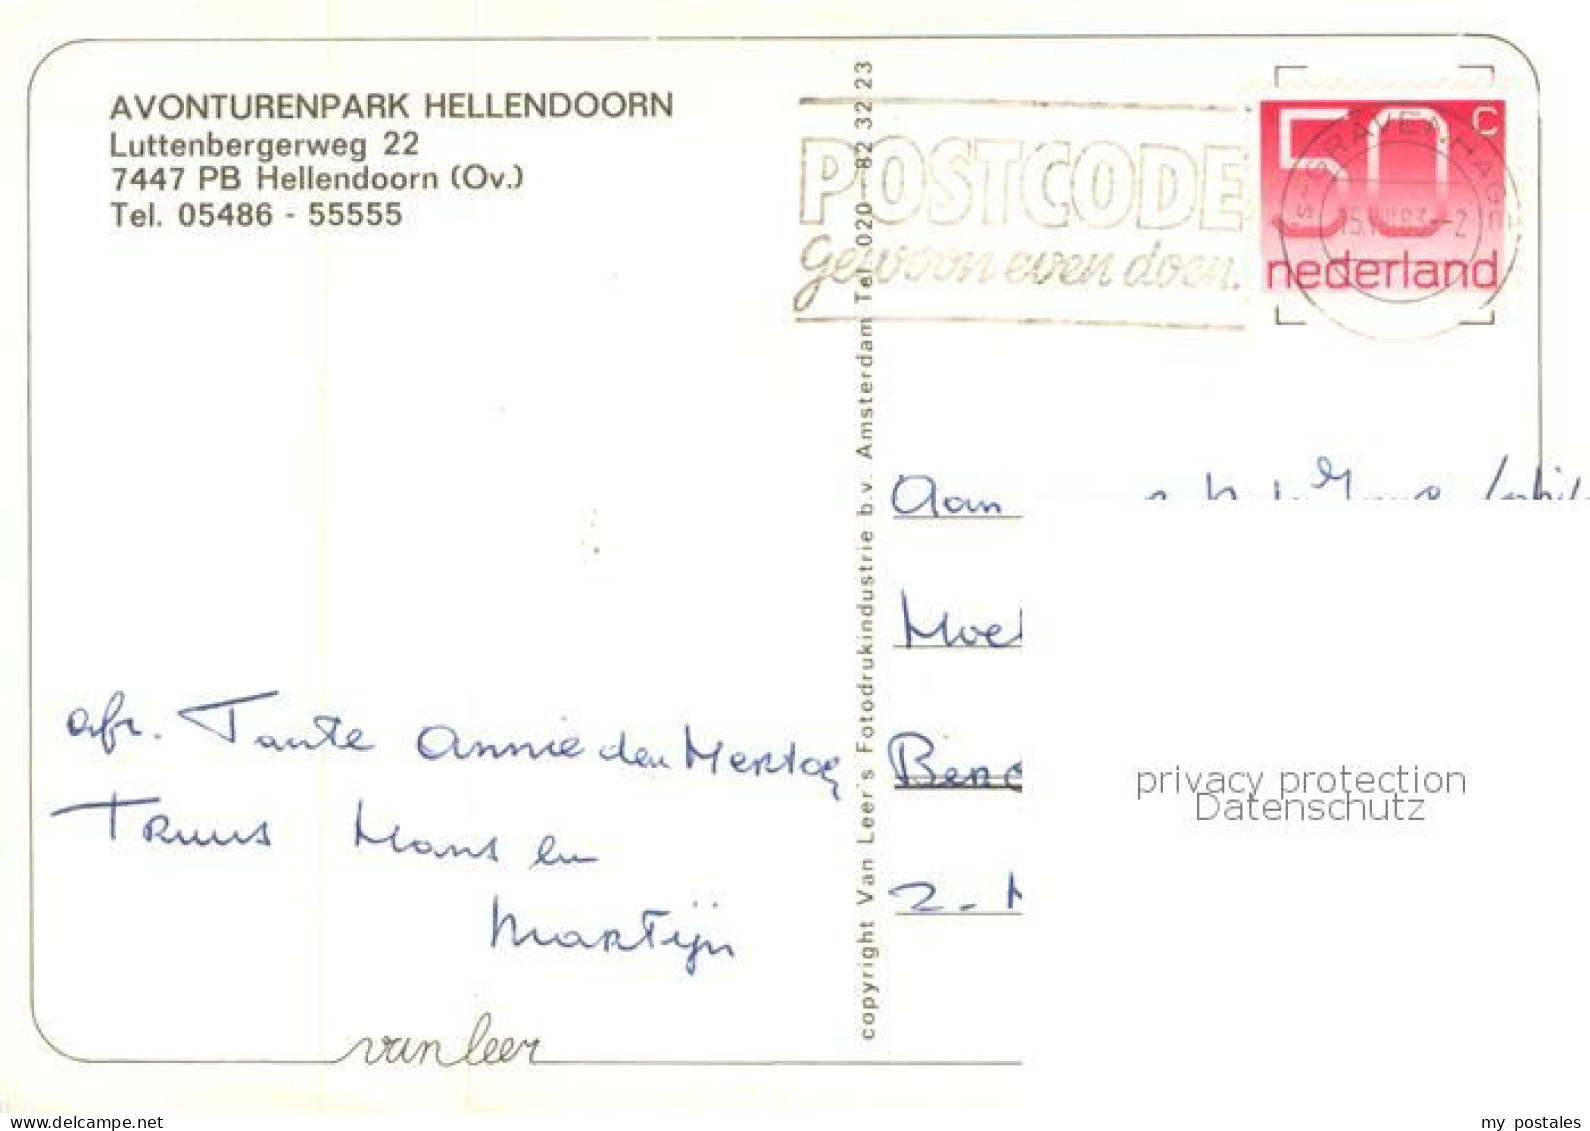 AVONTURENPARK HELLENDOORN
Luttenbergerweg 22
7447 PB Hellendoorn (Ov.)
Tel. 05486 - 55555
POSTCODE
gewoon even doen.
50 c
nederland
'S-GRAVENHAGE
copyright Van Leer's Fotodrukindustrie b.v. Amsterdam Tel. 020 - 82 32 23
Aan
afz. Tante Annie den Hertog
Truus Hans en
Martijn
2.
van leer
privacy protection
Datenschutz
www.delcampe.net
my_postales